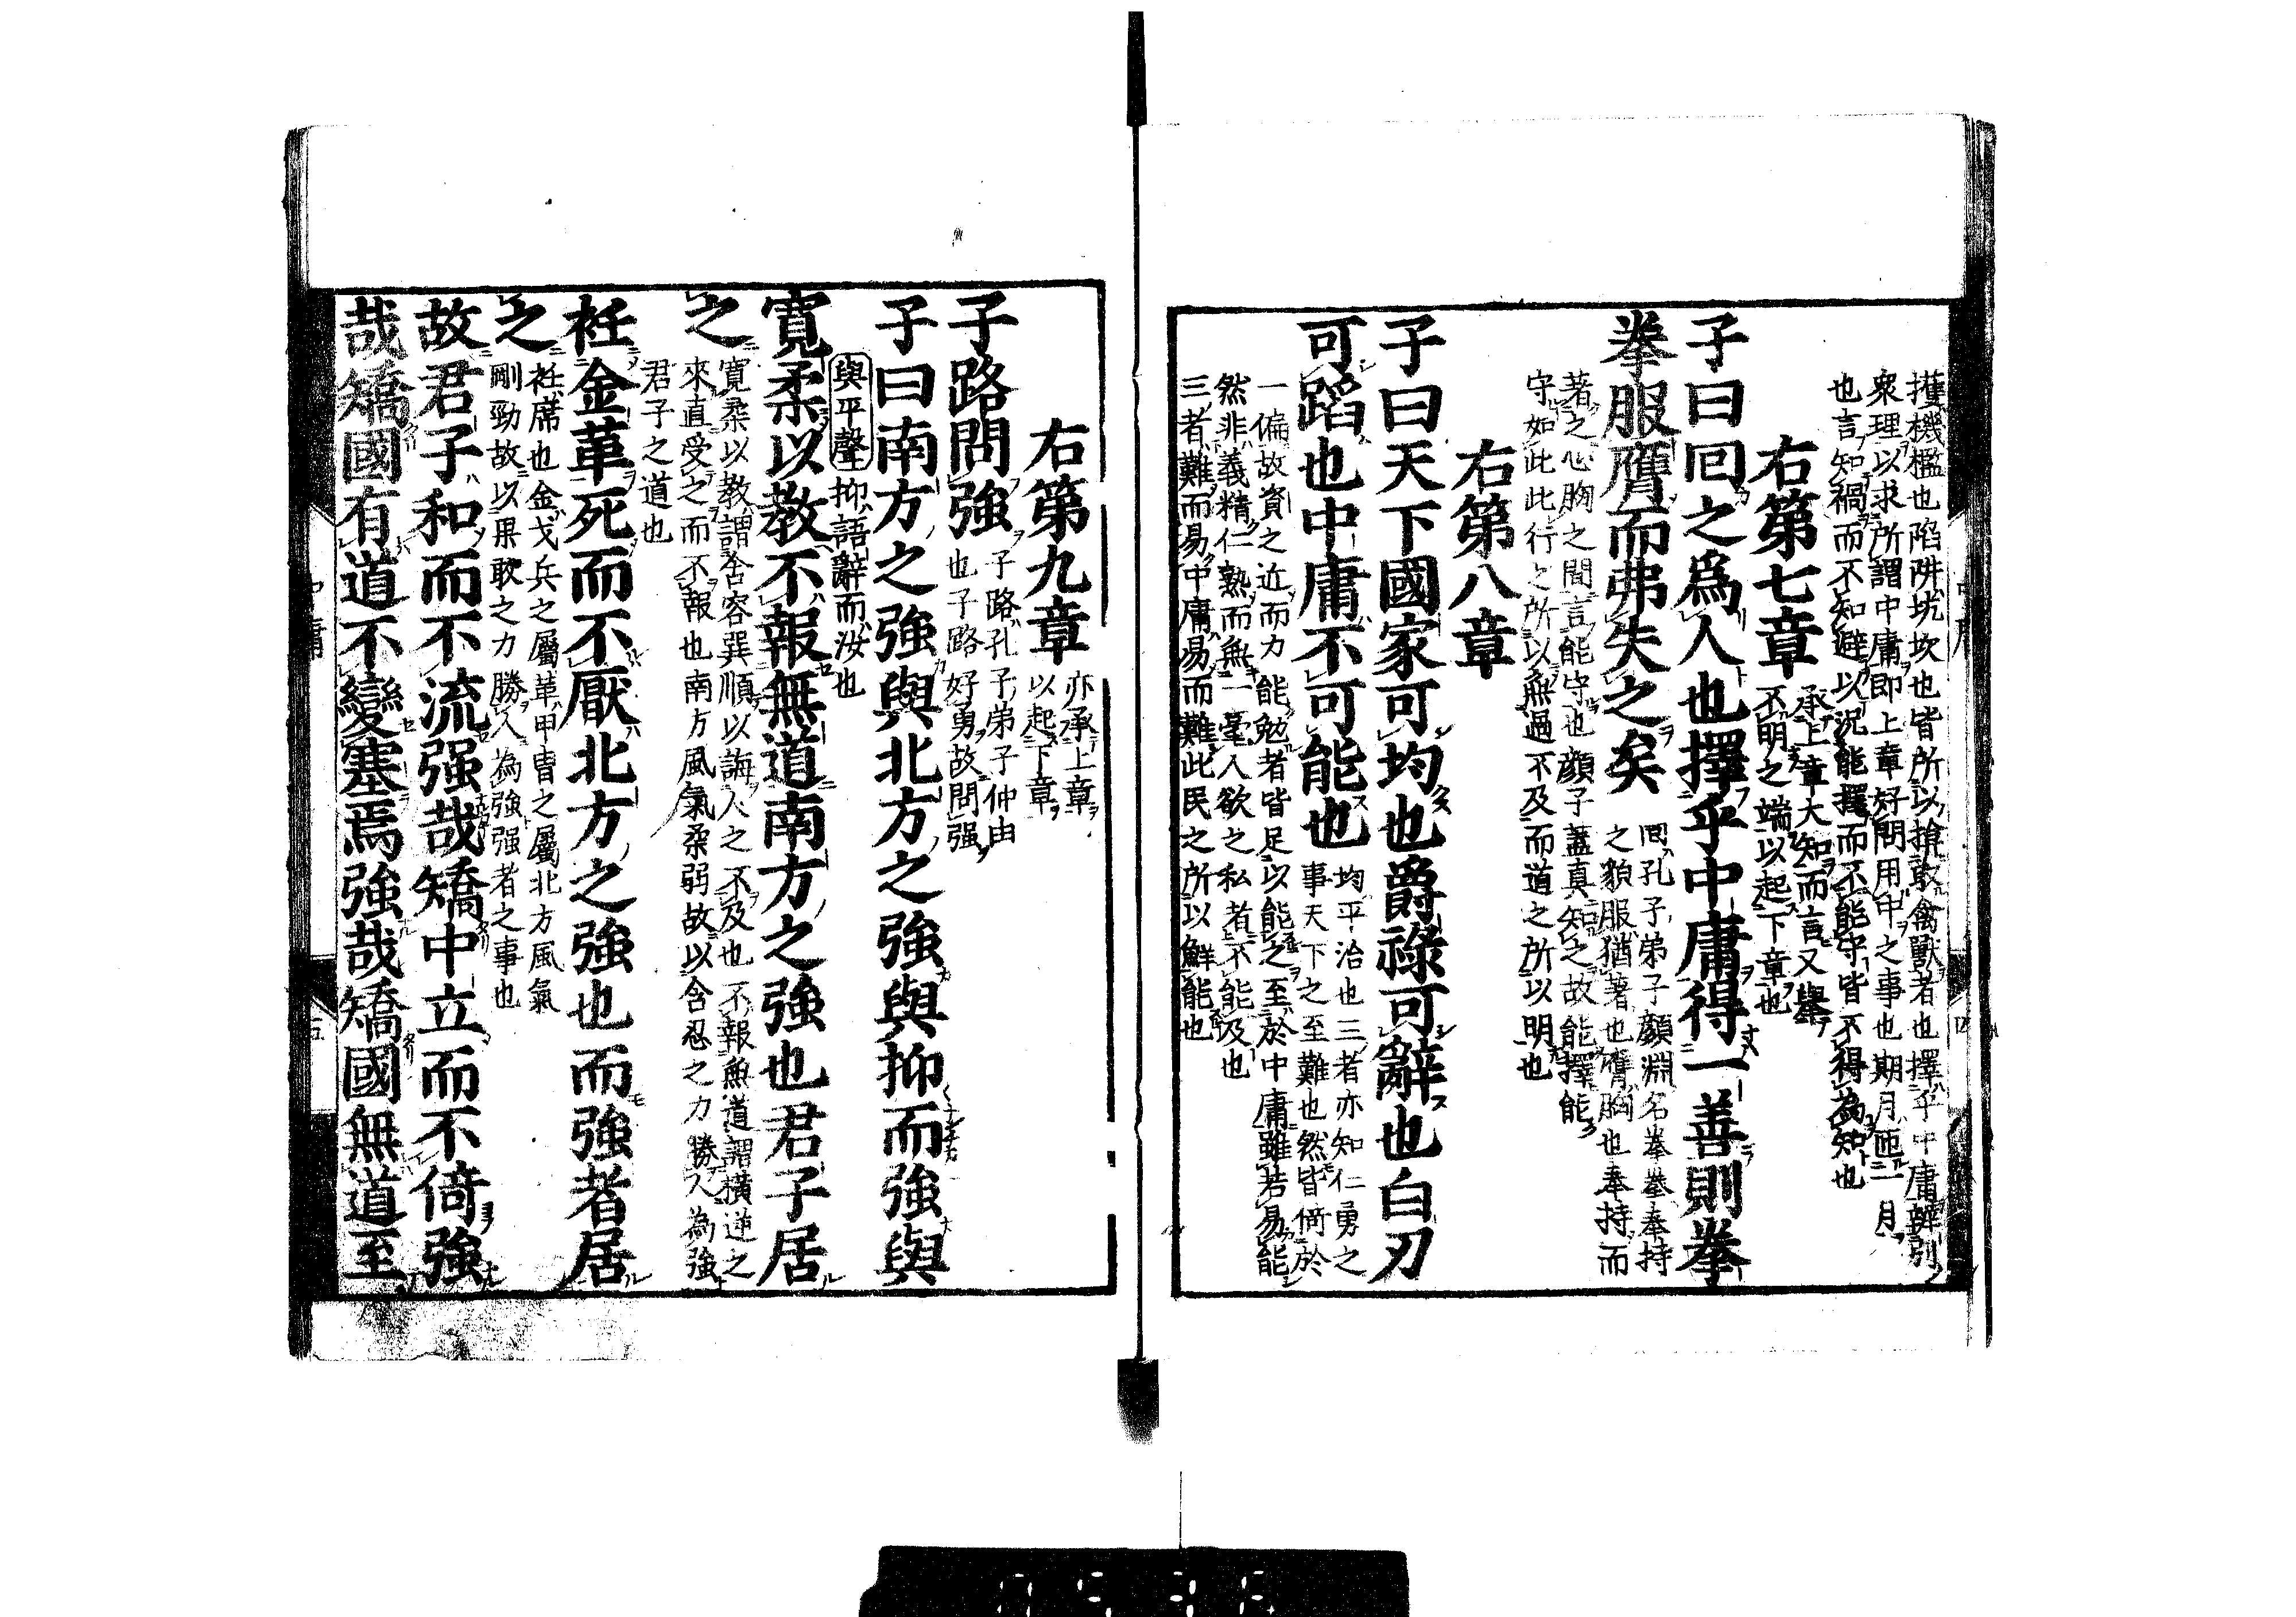 擭機檻也陷阱坑坎也皆所以揜取禽獸者也擇乎中庸辨別
衆理以求所謂中庸即上章好問用中之事也期月匝一月
也言知禍而不知避以況能擇而不能守皆不得為知也
右第七章
承上章大知而言又舉
不明之端以起下章也
子曰回之爲人也擇乎中庸得一善則拳
拳服膺而弗失之矣
回孔子弟子顏淵名拳拳奉持
之貌服猶著也膺胸也奉持而
著之心胸之間言能守也顏子蓋真知之故能擇能
守如此此行之所以無過不及而道之所以明也
右第八章
子曰天下國家可均也爵祿可辭也白刃
可蹈也中庸不可能也
均平治也三者亦知仁勇之
事天下之至難也然皆倚於
一偏故資之近而力能勉者皆足以能之至於中庸雖若易能
然非義精仁熟而無一毫人欲之私者不能及也
三者難而易中庸易而難此民之所以鮮能也
右第九章
亦承上章
以起下章
子路問強
子路孔子弟子仲由
也子路好勇故問强
子曰南方之強與北方之強與抑而強與
與平聲
抑語辭而汝也
寛柔以教不報無道南方之強也君子居
之
寛柔以教謂含容巽順以誨人之不及也不報無道謂橫逆之
來直受之而不報也南方風氣柔弱故以含忍之力勝人為強
君子之道也
衽金革死而不厭北方之強也而強者居
之
衽席也金戈兵之屬革甲冑之屬北方風氣
剛勁故以果敢之力勝人為強强者之事也
故君子和而不流强哉矯中立而不倚強
哉矯國有道不變塞焉強哉矯國無道至